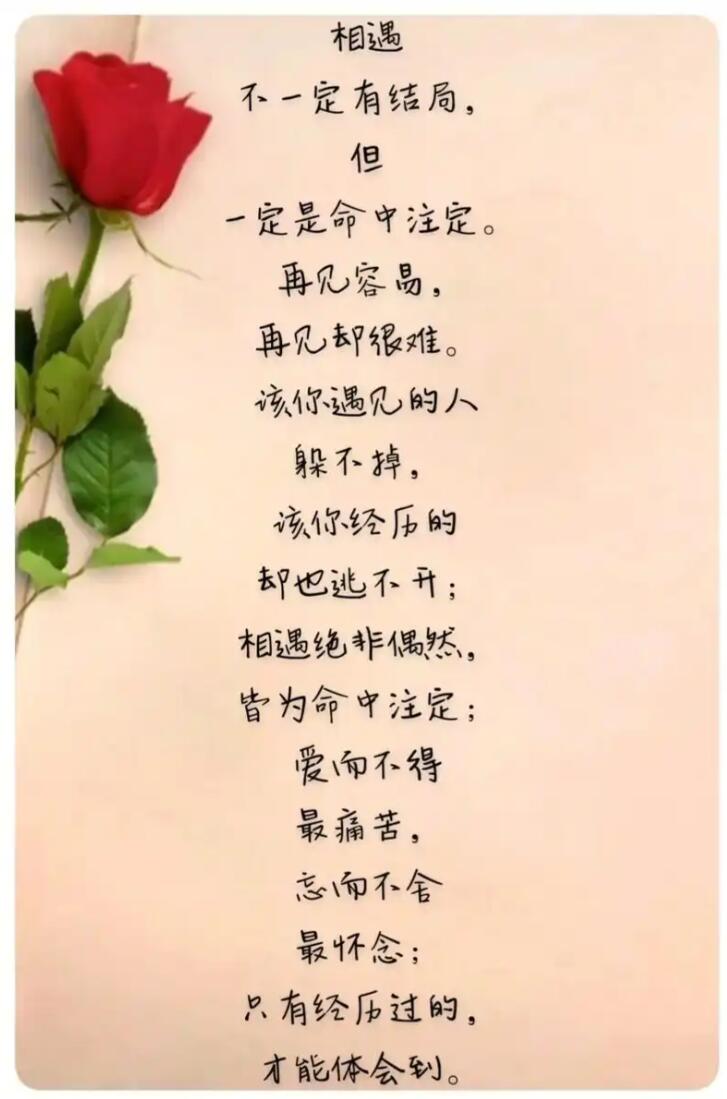 相遇
不一定有结局，
但
一定是命中注定。
再见容易，
再见却很难。
该你遇见的人
躲不掉，
该你经历的
却也逃不开；
相遇绝非偶然，
皆为命中注定；
爱而不得
最痛苦，
忘而不舍
最怀念；
只有经历过的，
才能体会到。